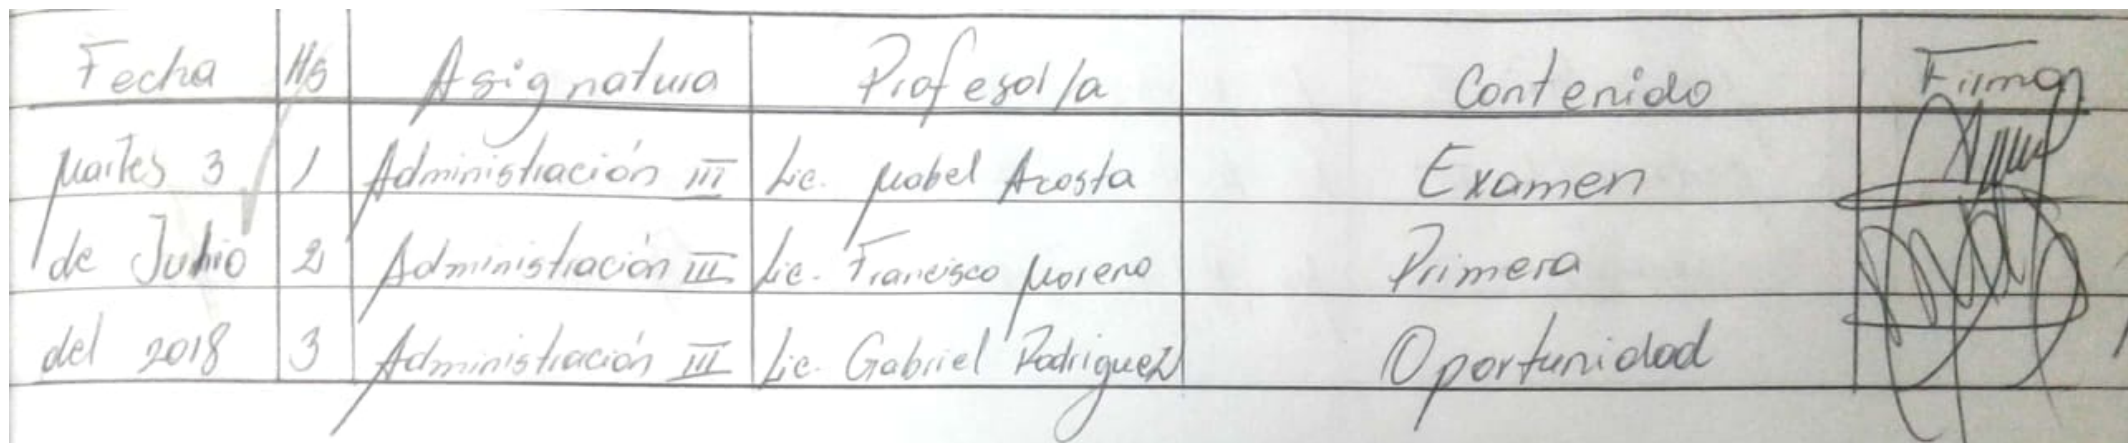 Fecha Hs Asignatura Profesor/a Contenido Firma
Martes 3 1 Administración III Lic. Mabel Acosta Examen
de Julio 2 Administración III Lic. Francisco Moreno Primera
del 2018 3 Administración III Lic. Gabriel Rodriguez Oportunidad